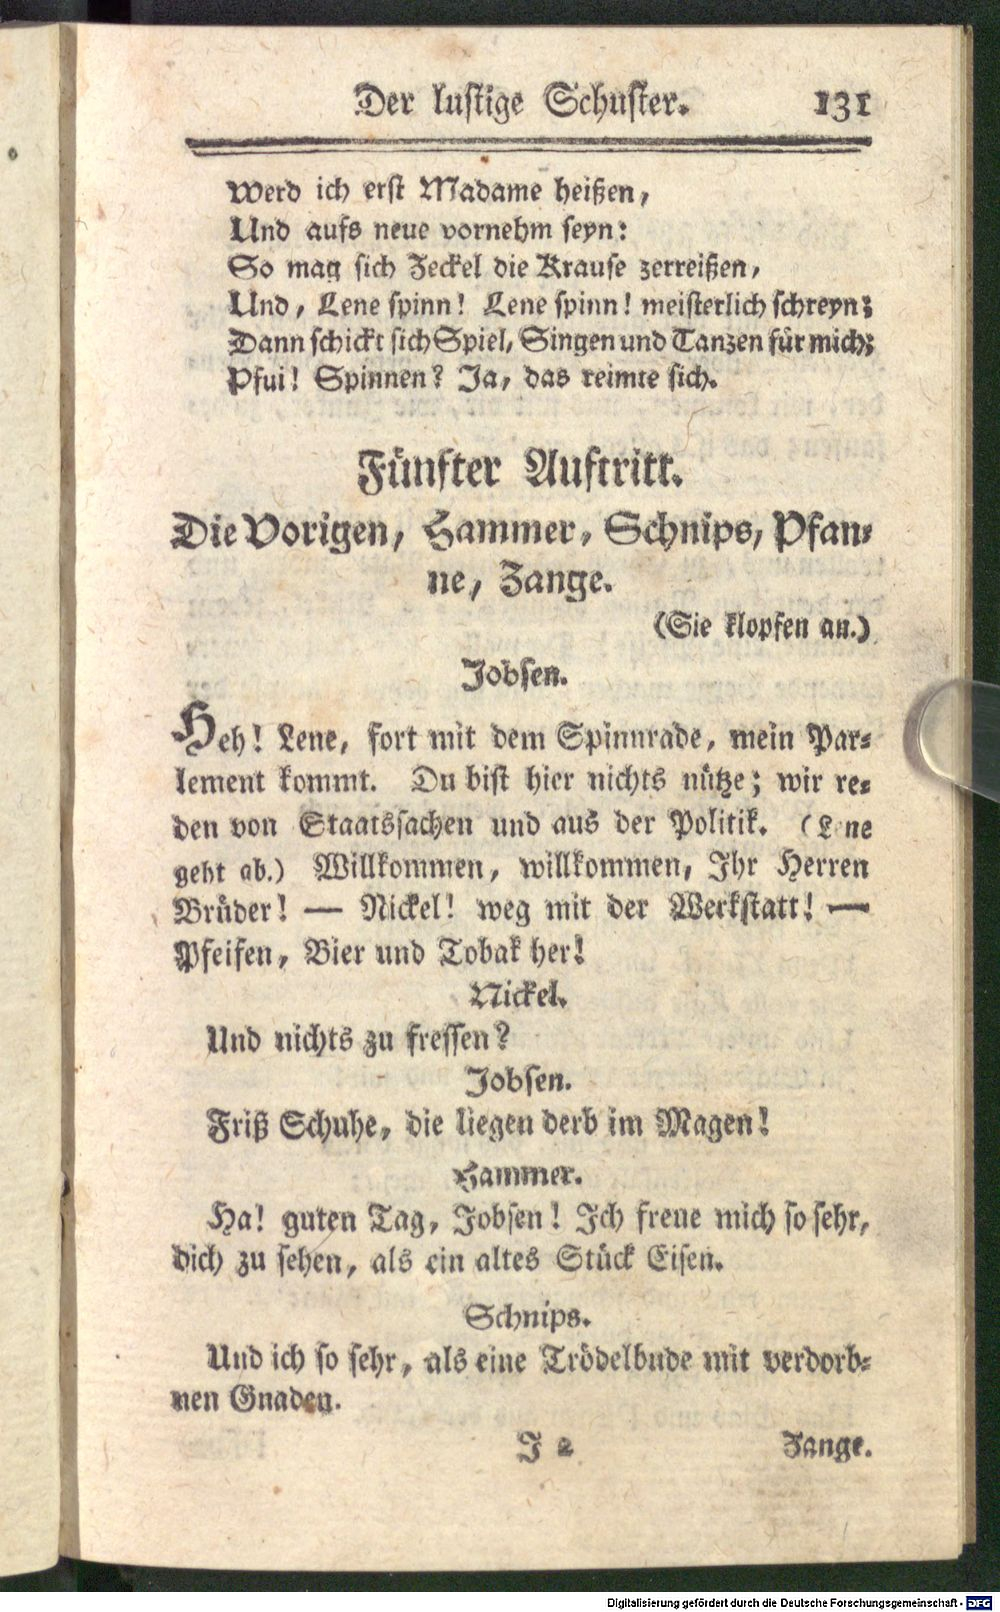 Der lustige Schuster. 131
Werd ich erst Madame heißen,
Und aufs neue vornehm seyn:
So mag sich Zeckel die Krause zerreißen,
Und, Lene spinn! Lene spinn! meisterlich schreyn;
Dann schickt sich Spiel, Singen und Tanzen für mich;
Pfui! Spinnen? Ja, das reimte sich.
Fünfter Auftritt.
Die Vorigen, Hammer, Schnips, Pfan-
ne, Zange.
(Sie klopfen an.)
Jobsen.
Heh! Lene, fort mit dem Spinnrade, mein Par-
lement kommt. Du bist hier nichts nütze; wir re-
den von Staatssachen und aus der Politik. (Lene
geht ab.) Willkommen, willkommen, Ihr Herren
Brüder! — Nickel! weg mit der Werkstatt! —
Pfeifen, Bier und Tobak her!
Nickel.
Und nichts zu fressen?
Jobsen.
Friß Schuhe, die liegen derb im Magen!
Hammer.
Ha! guten Tag, Jobsen! Ich freue mich so sehr,
dich zu sehen, als ein altes Stück Eisen.
Schnips.
Und ich so sehr, als eine Trödelbude mit verdorb-
nen Gnaden.
J 2 Zange.
Digitalisierung gefördert durch die Deutsche Forschungsgemeinschaft - DFG